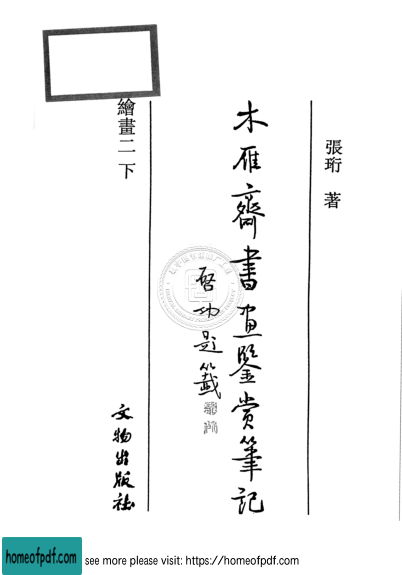 張珩 著
木雁齋書画鑒賞筆記
啓功題籤
繪畫二 下
文物出版社
homeofpdf.com
see more please visit: https://homeofpdf.com